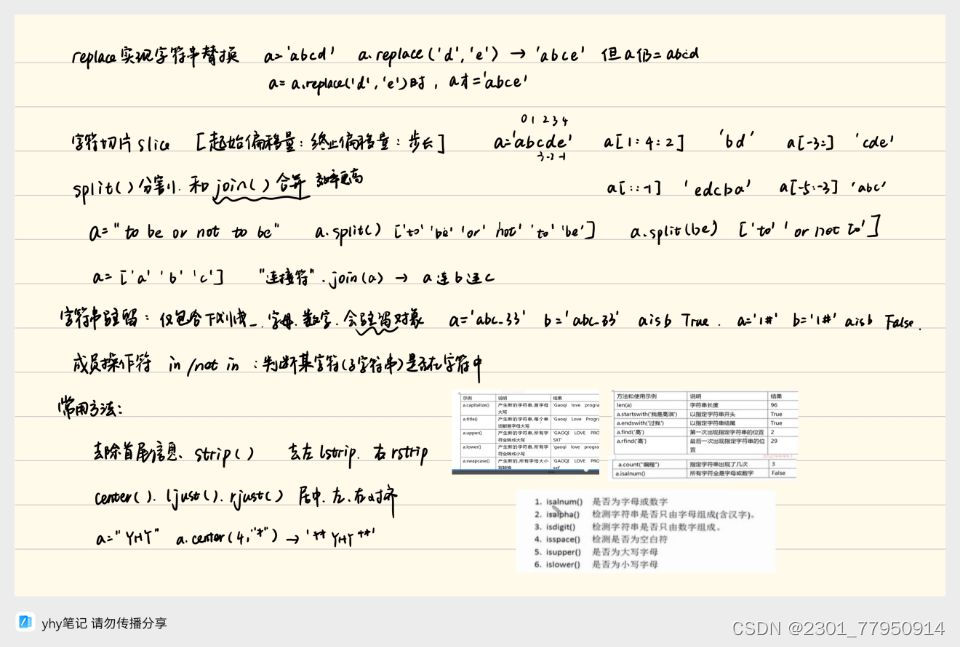 replace实现字符串替换 a='abcd' a.replace('d','e') → 'abce' 但a仍=abcd
a=a.replace('d','e')时, a才='abce'
0 1 2 3 4
字符切片slice [起始偏移量:终止偏移量:步长] a='abcde' a[1:4:2] 'bd' a[-3:] 'cde'
-3-2-1
split()分割 和join()合并 效率更高 a[::-1] 'edcba' a[-5:-3] 'abc'
a="to be or not to be" a.split() ['to' 'be' 'or' not' 'to' 'be'] a.split(be) ['to' 'or not to']
a=['a' 'b' 'c'] "连接符".join(a) → a连b连c
字符串驻留: 仅包含下划线_ 字母、数字、会驻留对象 a='abc_33' b='abc_33' a is b True. a='1#' b='1#' a is b False.
成员操作符 in /not in :判断某字符(子字符串)是否在字符中
常用方法:
示例 说明 结果
a.capitalize() 产生新的字符串,首字母大写 Gaoqi love progra
a.title() 产生新的字符串,每个单词都首字母大写 Gaoqi Love Progr
a.upper() 产生新的字符串,所有字符全转成大写 GAOQI LOVE PRO SXT
a.lower() 产生新的字符串,所有字符全转成小写 gaoqi love progra
a.swapcase() 产生新的,所有字母大小写转换 GAOQI LOVE PROG sxt
方法和使用示例 说明 结果
len(a) 字符串长度 96
a.startswith('我是高淇') 以指定字符串开头 True
a.endswith('过我') 以指定字符串结尾 True
a.find('高') 第一次出现指定字符串的位置 2
a.rfind('高') 最后一次出现指定字符串的位置 29
a.count("编程") 指定字符串出现了几次 3
a.isalnum() 所有字符全是字母或数字 False
去除首尾信息、strip() 去左lstrip. 右rstrip
center(). ljust(). rjust() 居中.左.右对齐
a="YHY" a.center(4,"*") → '** YHY **'
1. isalnum() 是否为字母或数字
2. isalpha() 检测字符串是否只由字母组成(含汉字)。
3. isdigit() 检测字符串是否只由数字组成。
4. isspace() 检测是否为空白符
5. isupper() 是否为大写字母
6. islower() 是否为小写字母
yhy笔记 请勿传播分享
CSDN @2301_77950914